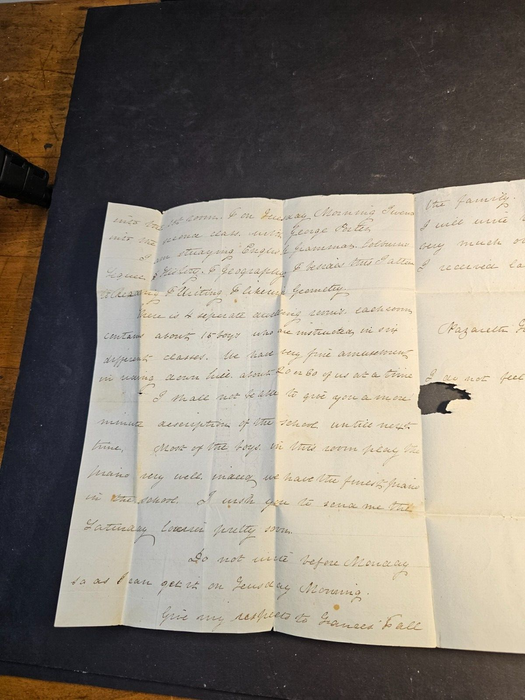 into the 1st room. & on Tuesday Morning I went
into the second class with George Bites
I am studying English Grammar, Colburns
History, & Geography, & besides this I attend
Reading & Writing & likewise Geometry.
There is 4 seperate dwelling rooms. each room
contains about 15 boys who are instructed in six
different classes. We have very fine amusement
in down hill. about 20 or 60 of us at a time
I shall not be able to give you a more
minute description of the school untill next
time. Most of the boys in this room play the
piano very well. indeed we have the finest piano
in the school. I wish you to send me the
Saturday pretty soon.
Do not write before Monday
so as I can get it on Tuesday Morning.
Give my respects to Frances & all
the family.
I will write
very much
I receive
Nazareth
I do not feel